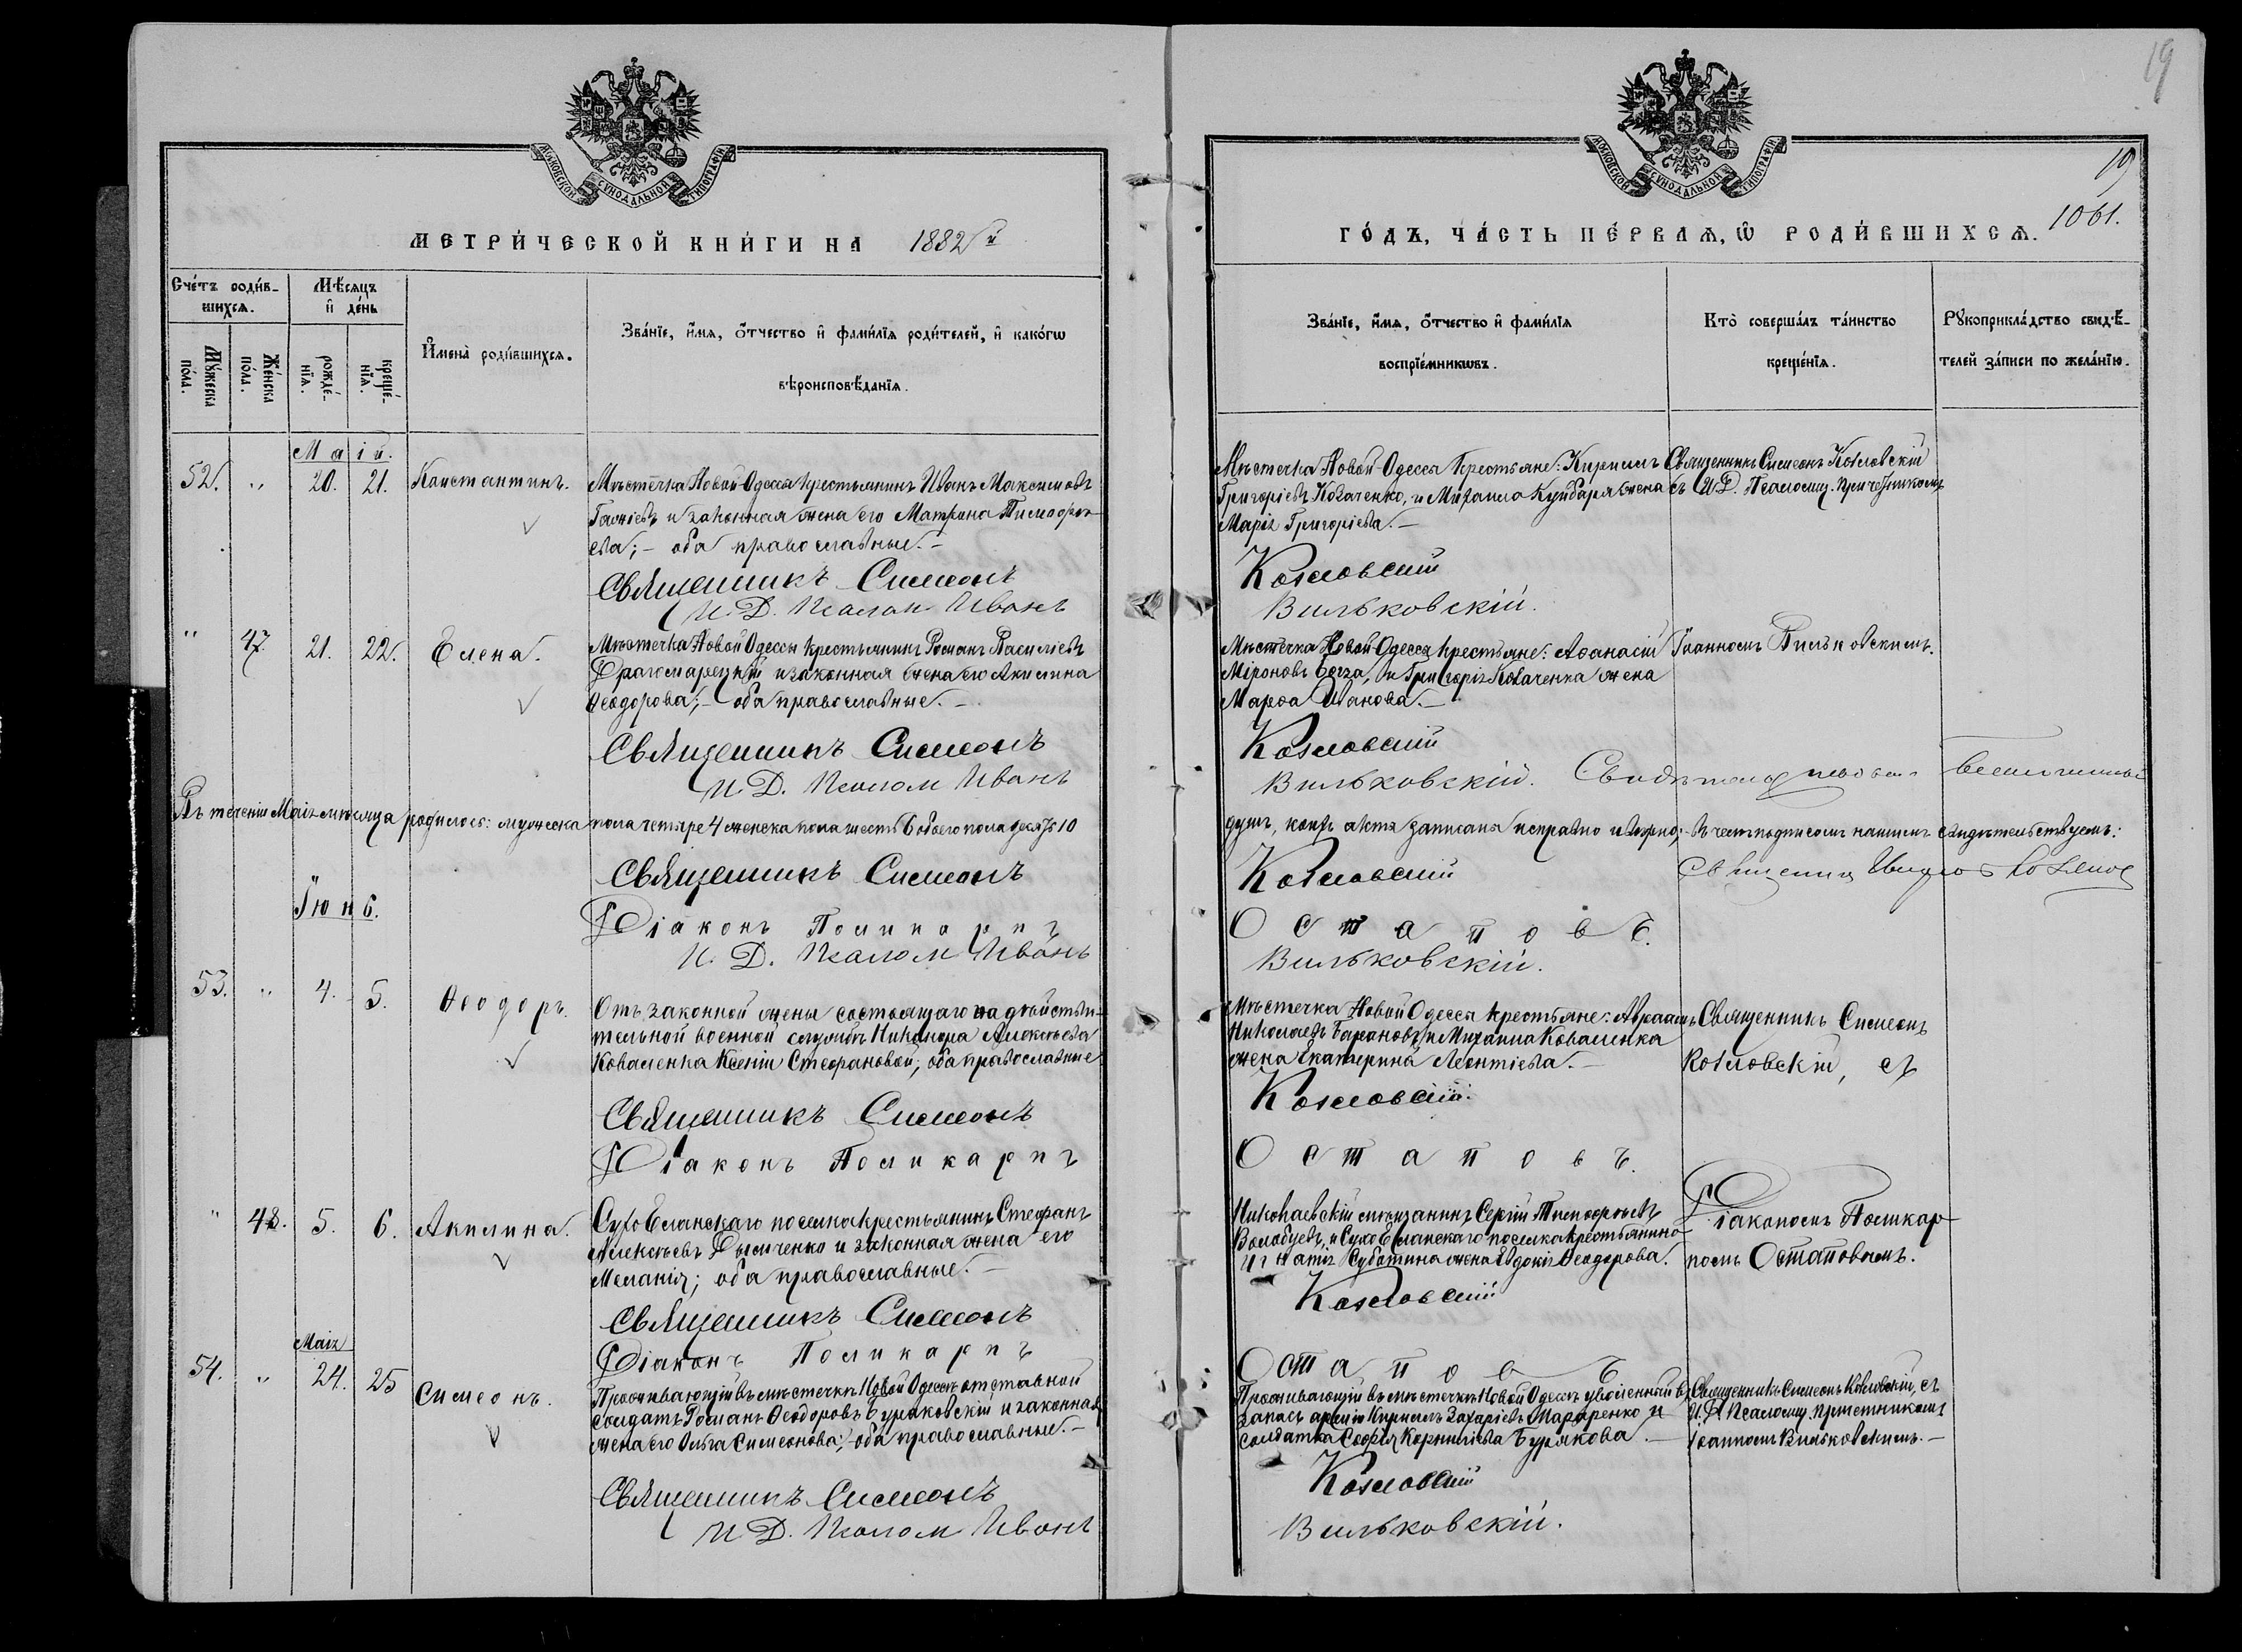 19
МОСКОВСКОЙ СУНОДАЛЬНОЙ ТИПОГРАФІИ
МОСКОВСКОЙ СУНОДАЛЬНОЙ ТИПОГРАФІИ
19
МЕТРИ́ЧЕСКОЙ КНИ́ГИ НА 1882й
ГО́ДЪ, ЧА́СТЬ ПЕ́РВАѦ, Ѡ РОДИ́ВШИХСѦ. 1061.
Сче́тъ роди́в-
шихсѧ.
Мѣ́сѧцъ
и҆ де́нь
Мꙋ́жеска
по́ла.
Же́нска
по́ла.
рожде́-
нїѧ.
креще́-
нїѧ.
И҆мена̀ роди́вшихсѧ.
Зва́нїе, и҆́мѧ, ѻ҆́тчество и҆ фами́лїѧ роди́телей, и҆ како́гѡ
вѣроисповѣ́данїѧ.
Зва́нїе, и҆́мѧ, ѻ҆́тчество и҆ фами́лїѧ
воспрїе́мникѡвъ.
Кто̀ соверша́лъ та́инство
креще́нїѧ.
Рꙋкоприкла́дство свидѣ́-
телей за́писи по жела́нїю.
Маій.
52. " 20. 21. Константинъ.
Мѣстечка Новой-Одессы крестьянинъ Иванъ Максимовъ
и законная жена его Матрона Тимофее-
ева; – оба православные. –
Священникъ Симеонъ
И. Д. Псалом Иванъ
Мѣстечка Новой-Одессы крестьяне: Кириллъ
Григоріевъ Коваченко, и Михаила Куйбаря жена
Марія Григоріева. –
Козловскій
Вильковскій.
Священникъ Симеонъ Козловскій
съ И. Д. Псаломщ. Причетникомъ
" 47. 21. 22. Елена.
Мѣстечка Новой Одессы крестьянинъ Романъ Василіевъ
Драгомарецкій и законная жена его Акилина
Ѳеодорова; – оба православные. –
Священникъ Симеонъ
И. Д. Псалом Иванъ
Мѣстечка Новой-Одессы крестьяне: Аѳанасій
Міроновъ и Григорія Коваченка жена
Марѳа Иванова. –
Козловскій
Вильковскій.
Іоанномъ Вильковскимъ.
Въ теченіи Маія мѣсяца родилось: мужеска пола четыре 4 женска пола шесть 6 обоего пола десять 10
душъ, коихъ акты записаны исправно и вѣрно; въ чемъ подписомъ нашимъ свидѣтельствуемъ:
Священникъ Симеонъ
Козловскій
Іюнь.
Діаконъ Поликарпъ
Остаповъ.
И. Д. Псалом Иванъ
Вильковскій.
53. " 4. 5. Ѳеодоръ.
Отъ законной жены состоящаго на дѣйстви-
тельной военной службѣ Никанора Алексѣева
Коваленка Ксеніи Стефановой; оба православные
Священникъ Симеонъ
Діаконъ Поликарпъ
Мѣстечка Новой Одессы крестьяне: Авраамъ
Николаевъ Барановъ, и Михаила Коваленка
жена Екатерина Леонтіева. –
Козловскій.
Остаповъ.
Священникъ Симеонъ
Козловскій, съ
" 48. 5. 6. Акилина.
Сухо Еланскаго поселка крестьянинъ Стефанъ
Алексѣевъ и законная жена его
Меланія; оба православные. –
Священникъ Симеонъ
Діаконъ Поликарпъ
Николаевскій мѣщанинъ Сергій Тимофеевъ
Волобуевъ, и Сухо Еланскаго поселка крестьянина
Игнатія Суботина жена Евдокія Ѳеодорова.
Козловскій
Остаповъ
Діакономъ Поликар-
помъ Остаповымъ.
Маія
54. " 24. 25 Симеонъ.
Проживающій въ мѣстечкѣ Новой Одессѣ отставной
солдатъ Романъ Ѳеодоровъ Бураковскій и законная
жена его Ольга Симеонова; – оба православные. –
Священникъ Симеонъ
И. Д. Псалом Иванъ
Проживающій въ мѣстечкѣ Новой Одессѣ уволенный въ
запасъ арміи Кириллъ Захаріевъ Макаренко и
солдатка Софія Корниліева Бурякова. –
Козловскій
Вильковскій.
Священникъ Симеонъ Козловскій, съ
И. Д. Псаломщ. Причетникомъ
Іоанномъ Вильковскимъ. –